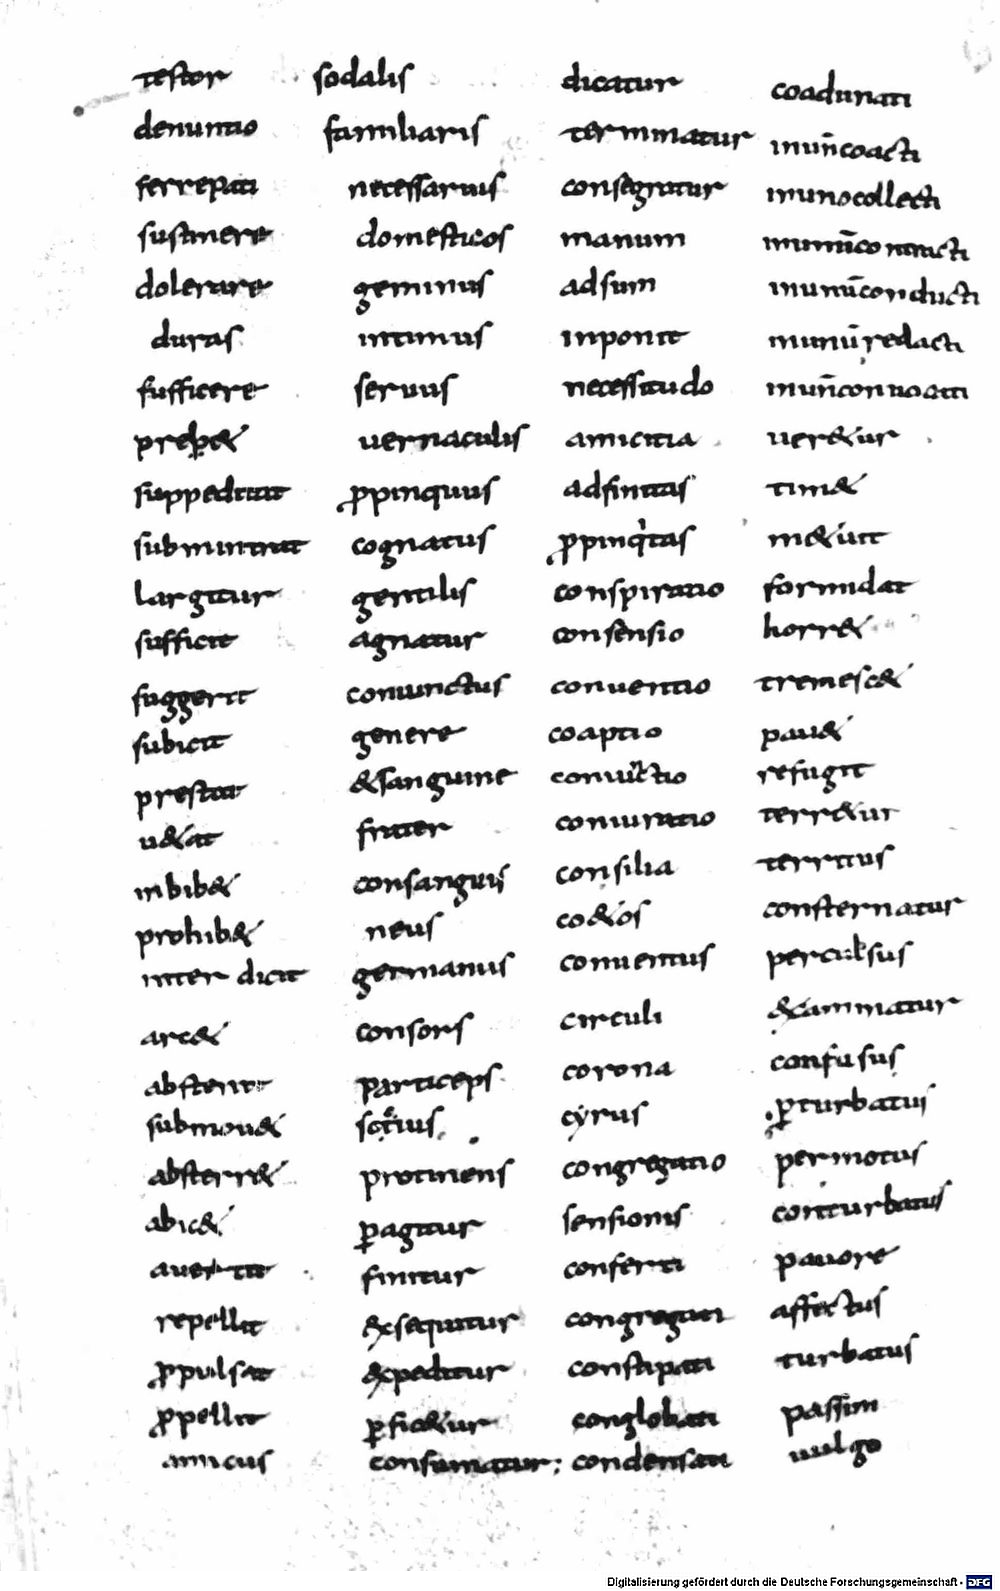 testor
denuntio
ferrepati
sustinere
dolerare
duras
sufficere
prebet
suppeditat
subministrat
largitur
sufficit
suggerit
subicit
prestat
uetat
inhibet
prohibet
inter dicit
arcet
abstenet
submouet
absterret
abicet
auertit
repellit
ꝓpulsat
ꝓpellit
amicus
sodalis
familiaris
necessarius
domesticos
geminus
intimus
seruus
uernaculis
ꝓpinquus
cognatus
gentilis
agnatur
coniunctus
genere
&sanguine
frater
consangui
neus
germanus
consors
particeps
protinens
ꝑagitur
finitur
&sequitur
&peditur
ꝑfic&ur
consumatur;
dicatur
terminatur
consegratur
manum
adsum
inponit
necessitudo
amicitia
adfinitas
ꝓpinqͥtas
conspiratio
consensio
conuentio
coaptio
coniuratio
consilia
co&os
conuentus
circuli
corona
cyrus
congregatio
sensionis
conferti
congregati
constipati
conglobati
condensati
coadunati
inun̄coacti
inunocollecti
inunūcontracti
inunūconducti
inunūredacti
inun̄conuocati
uer&ur
tim&
m&uit
formidat
horr&
tremesc&
pau&
refugit
terr&ur
territus
consternatur
perculsus
&animatur
confusus
ꝑturbatus
permotus
conturbatus
pauore
affectus
turbatus
passim
uulgo
Digitalisierung gefördert durch die Deutsche Forschungsgemeinschaft - DFG